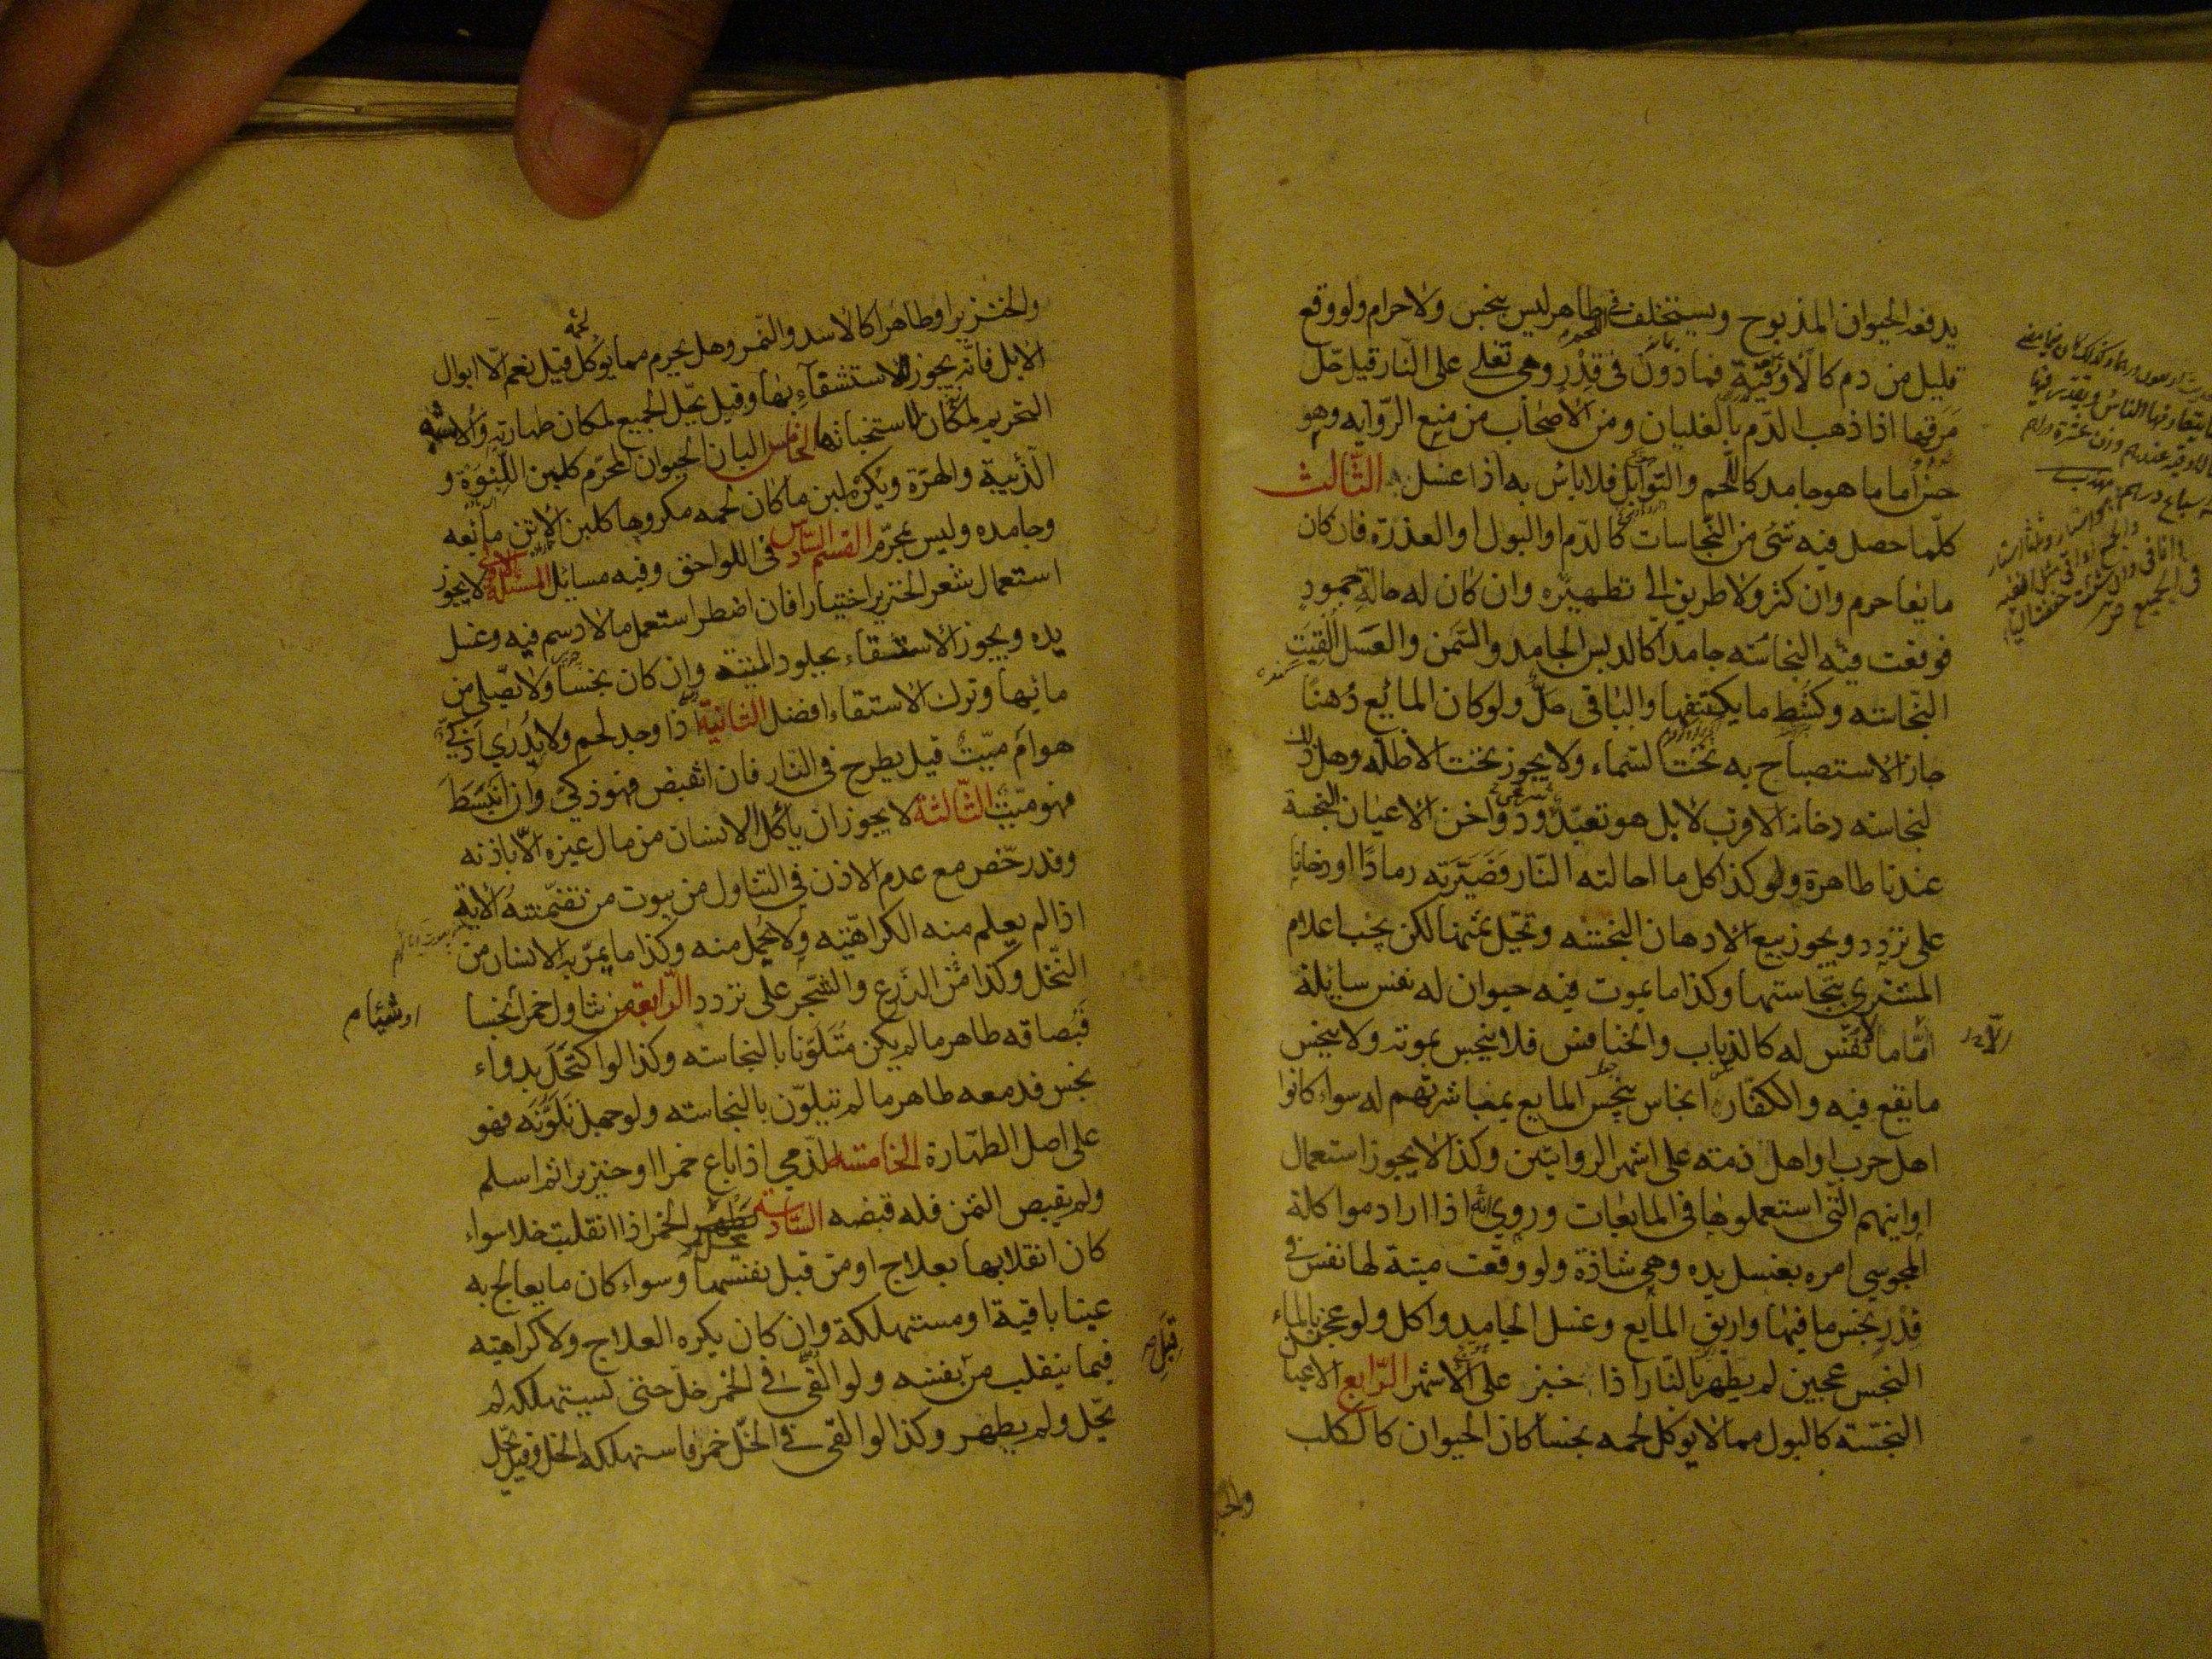 يدفعه الحيوان المذبوح ويستخلف في اللحم طاهر ليس بنجس ولا حرام ولو وقع
قليل من دم كالأوقية فما دون في قدر وهي تغلي على النار قيل حل
مرقها اذا ذهب الدم بالغليان ومن الاصحاب من منع الرواية وهو
حسن اما ما هو جامد كاللحم والتوابل فلا باس به اذا غسل الثالث
كلما حصل فيه شئ من النجاسات كالدم او البول او العذرة فان كان
مايعا حرم وان كثر ولا طريق الى تطهيره وان كان له حالة جمود
فوقعت فيه النجاسة جامدا كالدبس الجامد والسمن والعسل القيت
النجاسة وكشط ما يكتنفها والباقي حل ولو كان المايع دهنا
جاز الاستصباح به تحت السماء ولا يجوز تحت الاظلة وهل ذلك
لنجاسة دخانه الاقرب لا بل هو تعبد ودواخن الاعيان النجسة
عندنا طاهرة ولو كذا كل ما احالته النار فصيرته رمادا او دخانا
على تردد ويجوز بيع الادهان النجسة وتحل ثمنها لكن يجب اعلام
المشتري بنجاستها وكذا ما يموت فيه حيوان له نفس سايلة
اما ما لا نفس له كالذباب والخنافس فلا ينجس بموته ولا ينجس
ما يقع فيه والكفار انجاس ينجس المايع بمباشرتهم له سواء كانوا
اهل حرب او اهل ذمة على اشهر الروايتين وكذا لا يجوز استعمال
اوانيهم التي استعملوها في المايعات وروي انه اذا اراد مواكلة
المجوسي امره بغسل يده وهي شاذة ولو وقعت ميتة لها نفس في
قدر نجس ما فيها واريق المايع وغسل الجامد واكل ولو عجن بالماء
النجس عجين لم يطهر بالنار اذا خبز على الاشهر الرابع الاعيان
النجسة كالبول مما لا يوكل لحمه نجسا كان الحيوان كالكلب
والخنزير او طاهرا كالاسد والنمر وهل يحرم مما يوكل لحمه قيل نعم الا ابوال
الابل فانه يجوز الاستشفاء بها وقيل يحل الجميع لمكان طهارته والاشبه
التحريم لمكان استخباثها الخامس البان الحيوان المحرم كلبن اللبوة و
الذئبة والهرة ويكره لبن ما كان لحمه مكروها كلبن الاتن مايعه
وجامده وليس بمحرم القسم السادس في اللواحق وفيه مسايل المسئلة الاولى لا يجوز
استعمال شعر الخنزير اختيارا فان اضطر استعمل ما لا دسم فيه وغسل
يده ويجوز الاستقاء بجلود الميتة وان كان نجسا ولا يصلى من
مائها وترك الاستقاء افضل الثانية اذا وجد لحم ولا يدري اذكي
هو ام ميت قيل يطرح في النار فان انقبض فهو ذكي وان انبسط
فهو ميت الثالثة لا يجوز ان ياكل الانسان من مال غيره الا باذنه
وقد رخص مع عدم الاذن في التناول من بيوت من تضمنته الاية
اذا لم يعلم منه الكراهية ولا يحمل منه وكذا ما يمر به الانسان من
النخل وكذا من الزرع والشجر على تردد الرابعة من تناول خمرا نجسا
او شيئا
فبصاقه طاهر ما لم يكن متلونا بالنجاسة وكذا لو اكتحل بدواء
نجس فدمعه طاهر ما لم يتلون بالنجاسة ولو جهل تلونه فهو
على اصل الطهارة الخامسة الذمي اذا باع خمرا او خنزيرا ثم اسلم
ولم يقبض الثمن فله قبضه السادسة تطهر الخمر اذا انقلبت خلا سواء
كان انقلابها بعلاج او من قبل نفسها وسواء كان ما يعالج به
عينا باقية او مستهلكة وان كان يكره العلاج ولا كراهية
قبل
فيما ينقلب من نفسه ولو القي في الخمر خل حتى تستهلكه لم
يحل ولم يطهر وكذا لو القي في الخل خمر فاستهلكه الخل وقيل يحل